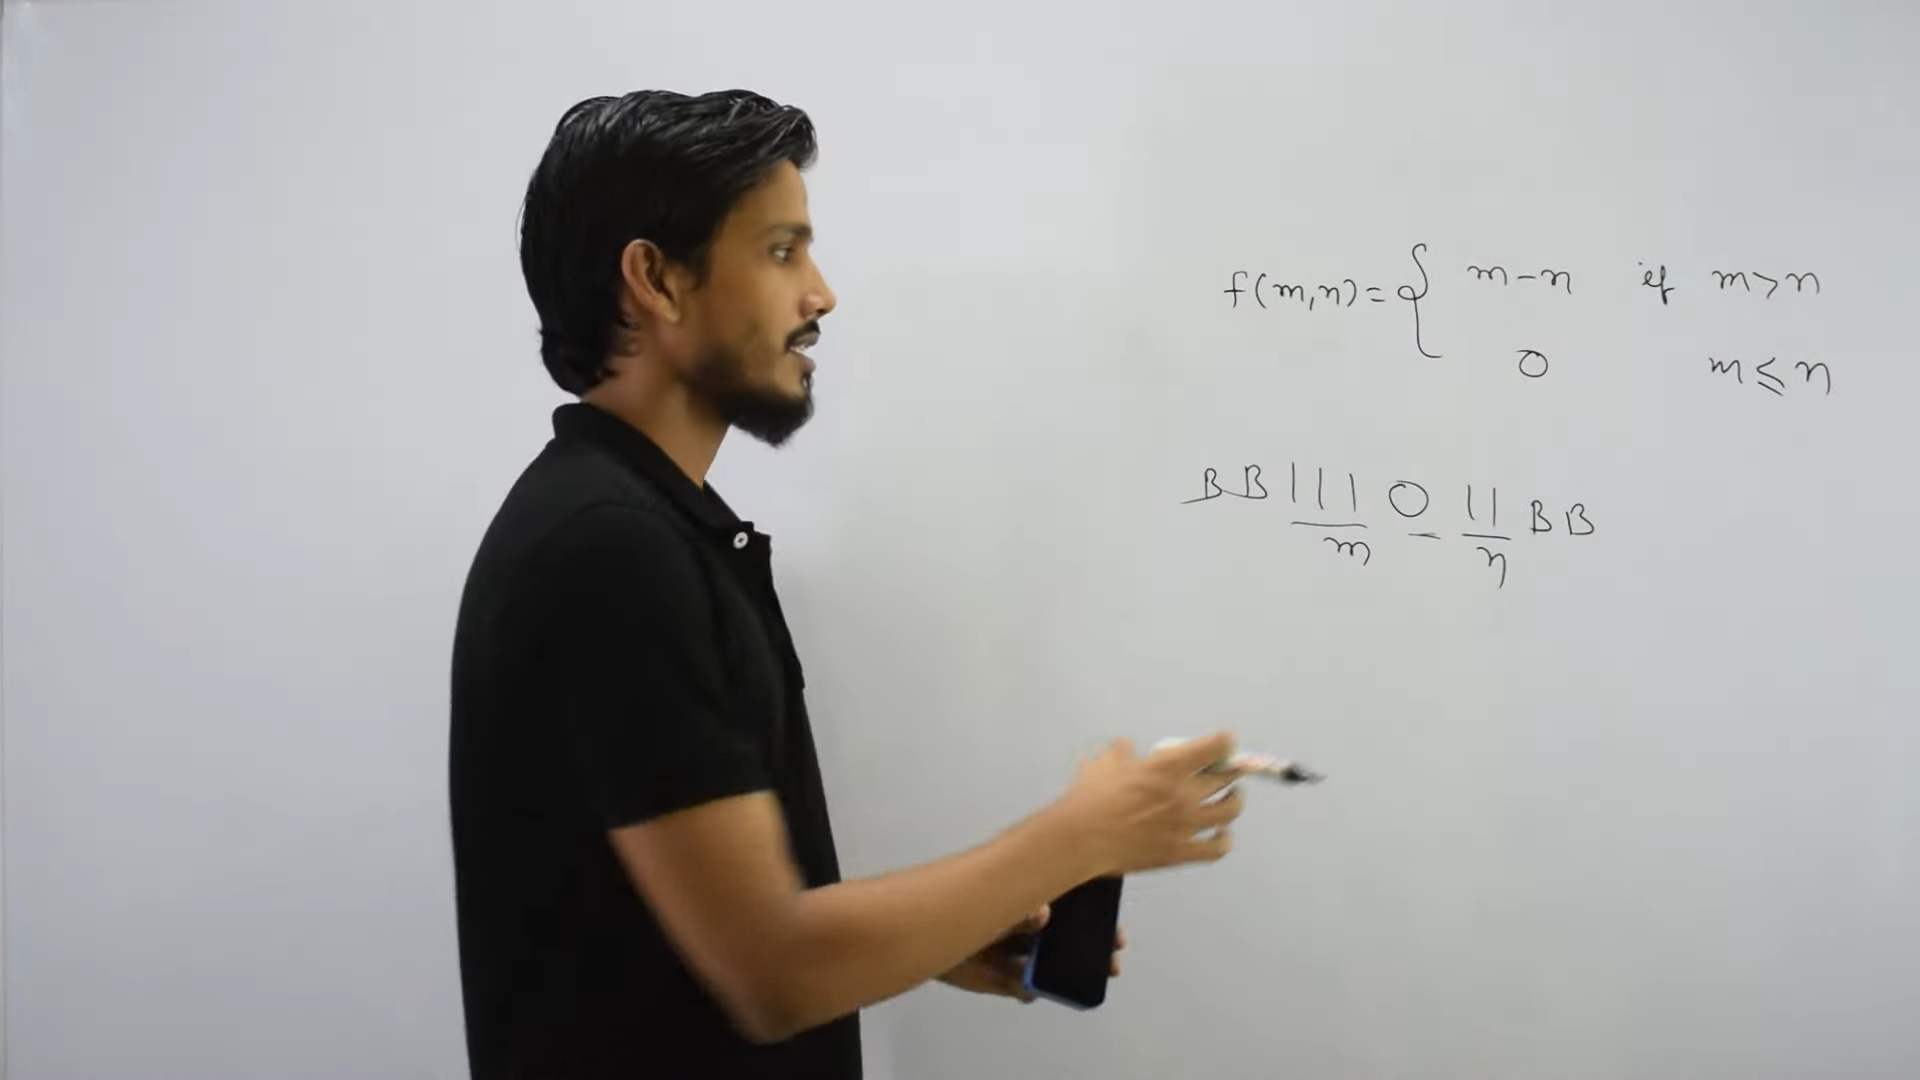 f(m,n)= { m-n if m>n
0 m≤n
BB 111 0 11 BB
m n